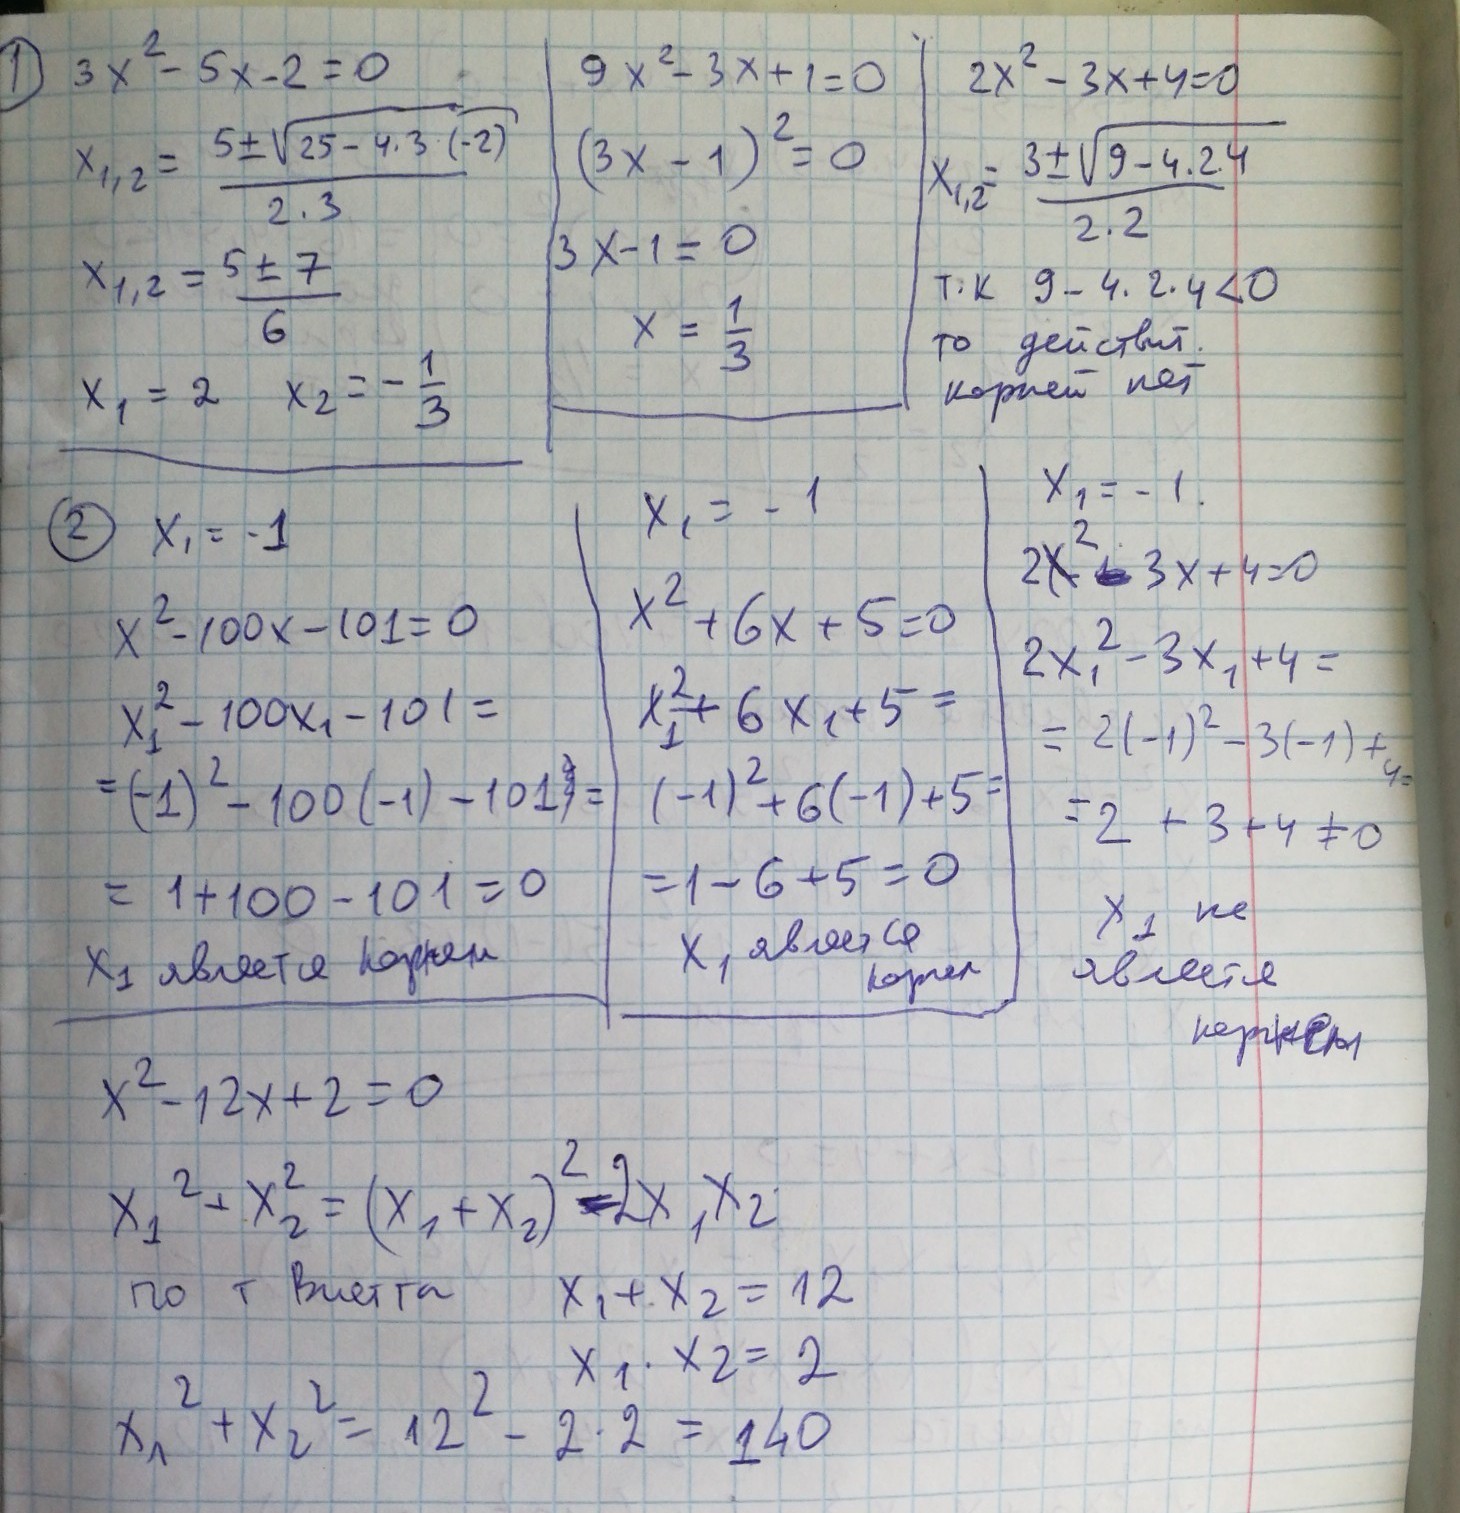 1
3x² - 5x - 2 = 0
x₁,₂ = (5 ± √(25 - 4·3·(-2))) / (2·3)
x₁,₂ = (5 ± 7) / 6
x₁ = 2   x₂ = -1/3
9x² - 3x + 1 = 0
(3x - 1)² = 0
3x - 1 = 0
x = 1/3
2x² - 3x + 4 = 0
x₁,₂ = (3 ± √(9 - 4·2·4)) / (2·2)
т.к 9 - 4·2·4 < 0
то действит.
корней нет
2 x₁ = -1
x² - 100x - 101 = 0
x₁² - 100x₁ - 101 =
= (-1)² - 100(-1) - 101 =
= 1 + 100 - 101 = 0
x₁ является корнем
x₁ = -1
x² + 6x + 5 = 0
x₁² + 6x₁ + 5 =
(-1)² + 6(-1) + 5 =
= 1 - 6 + 5 = 0
x₁ является
корнем
x₁ = -1.
2x² - 3x + 4 = 0
2x₁² - 3x₁ + 4 =
= 2(-1)² - 3(-1) + 4 =
= 2 + 3 + 4 ≠ 0
x₁ не
является
корнем
x² - 12x + 2 = 0
x₁² + x₂² = (x₁ + x₂)² - 2x₁x₂
по т Виетта   x₁ + x₂ = 12
x₁ · x₂ = 2
x₁² + x₂² = 12² - 2·2 = 140